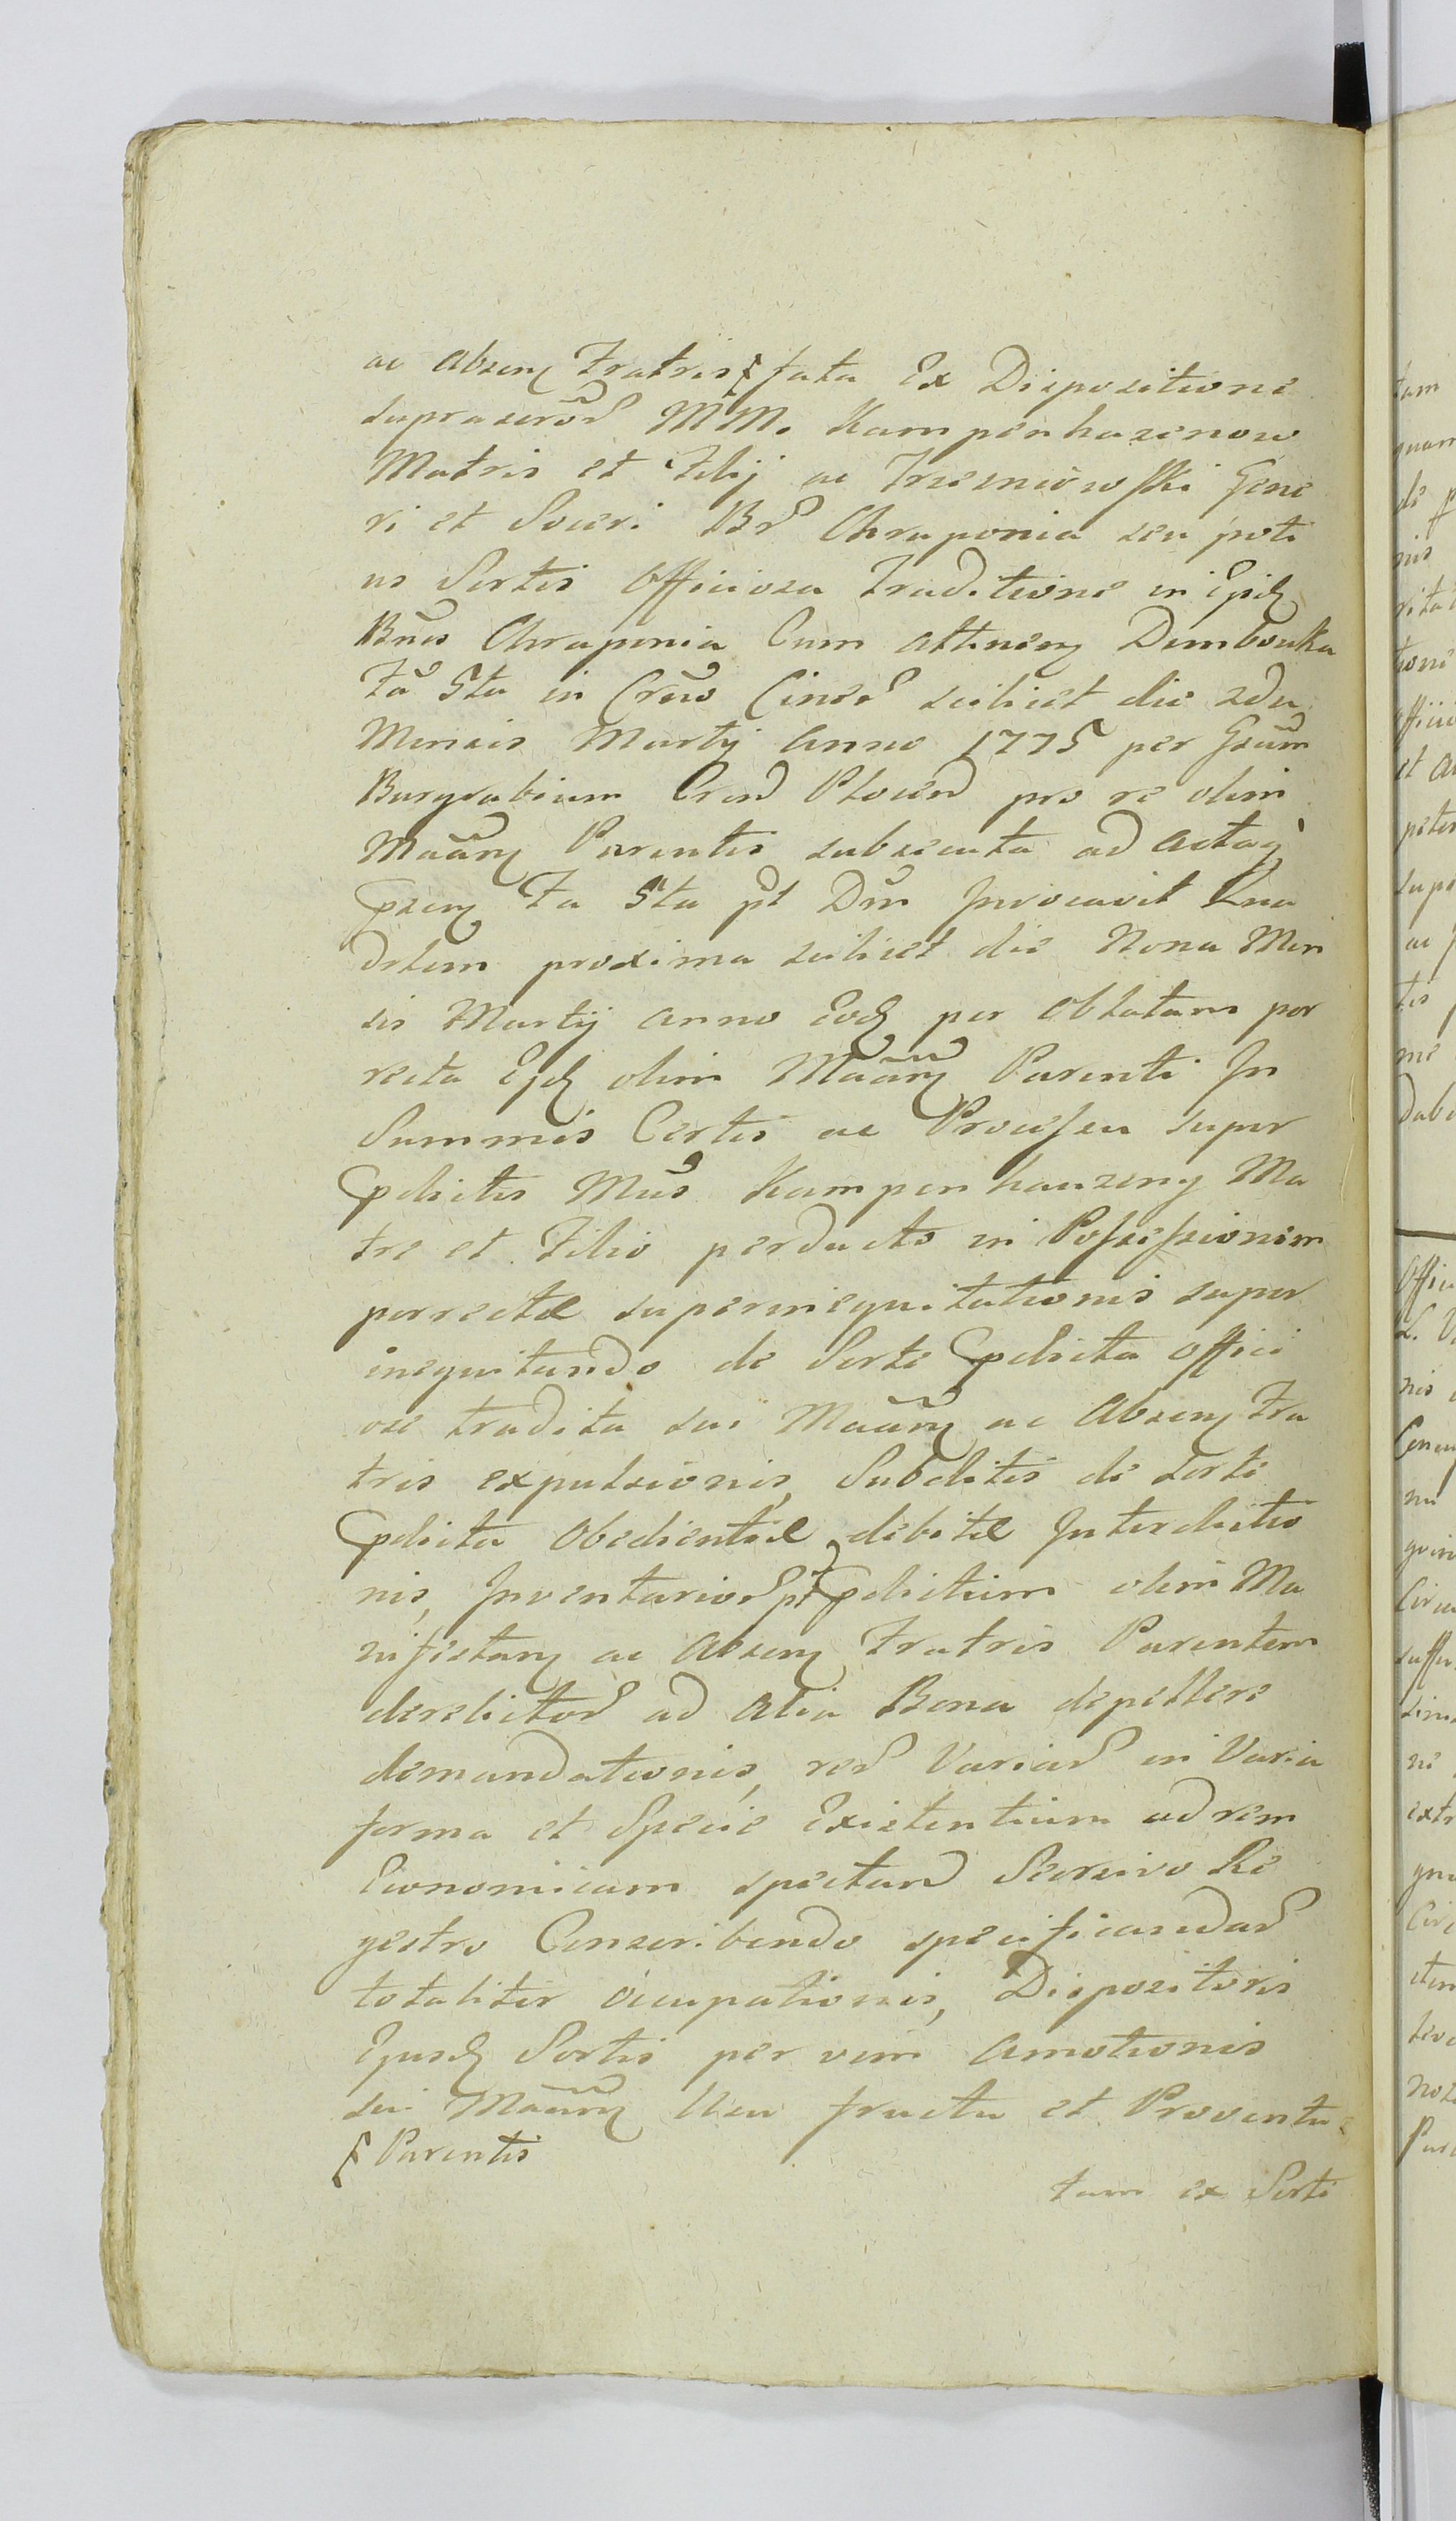 ac Absen Fratris fata Ex Dispositione
suprascrõr MM. Kampenhazenow
Matris et Filij ac Trzezniowski Gene
ri et Soceri Br Chraponia seu poti
us Sortis Officiosa Traditione in Ijsd
Bnis Chraponia Cum attinen Dembowka
Fa 5ta in Crãs Ciner scilicet die 2da
Mensis Martij Anno 1775 per Gsum
Burgrabium Cren Plocen pro re olim
Maãn Parentis subsecuta ad acta q
psen Fa 5ta pt Dm Invocavit Qua
drlem proxima scilicet die Nona Men
sis Martij anno Eod per Oblatam por
recta Ejd olim Maãn Parenti In
Summis Certis ac Processu super
pdictis Mũs Kampenhauzeny Ma
tre et Filio perducto in Possessionem
porrectæ superinequitationis super
inequitando de Sorte pdicta offici
ose tradita sui Maãn ac Absen Fra
tris expulsionis, Subditis de sorte
pdicta Obedientiæ debitæ Interdictio
nis, Inventarior pt pdictum olim Ma
nifestan ac Absen Fratris Parentem
derelictor ad alia Bona depellere
demandationis, rer Variar in Varia
forma et Specie Existentium ad rem
Economicam spectan Seorsivo Re
gestro Conscribendo specificandar
totaliter occupationis, Dispozitoris
Ejusd Sortis per vim amotionis
sui Maãn Usu fructu et Proventu
Parentis
tam ex Sorte